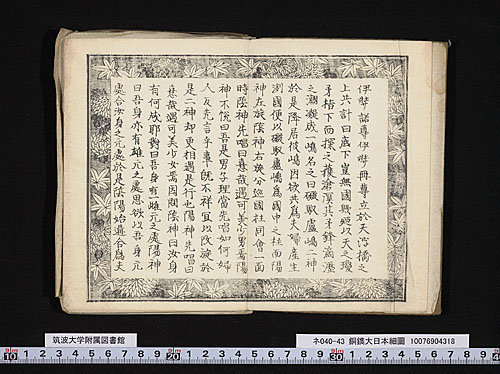 伊弉諾尊伊弉冊尊立於天浮橋之
上共計曰底下豈無國歟廼以天之瓊
矛指下而探之獲滄溟其矛鋒滴瀝
之潮凝成一嶋名之曰磤馭盧嶋二神
於是降居彼嶋因欲共爲夫婦産生
洲國便以磤馭盧嶋爲國中之柱而陽
神左旋陰神右旋分巡國柱同會一面
時陰神先唱曰憙哉遇可美少男焉陽
神不悦曰吾是男子理當先唱如何婦
人反先言乎事既不祥宜以改旋於
是二神却更相遇是行也陽神先唱曰
憙哉遇可美少女焉因問陰神曰汝身
有何成耶對曰吾身有雌元之處陽神
曰吾身亦有雄元之處思欲以吾身元
處合汝身之元處於是陰陽始遘合爲夫
筑波大学附属図書館
ネ040-43 銅鐫大日本細圖 10076904318
10 20 30